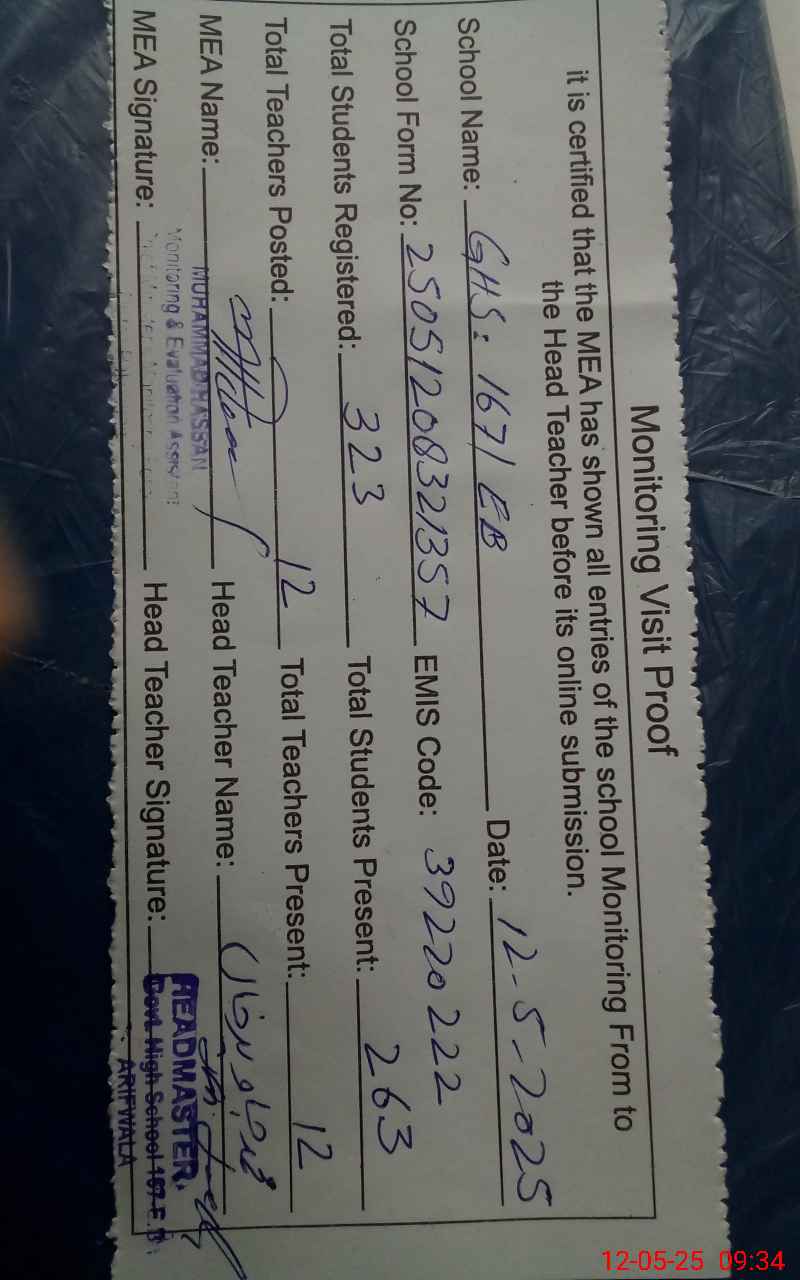 Monitoring Visit Proof
it is certified that the MEA has shown all entries of the school Monitoring From to
the Head Teacher before its online submission.
School Name: GHS: 167/EB Date: 12-5-2025
School Form No: 25051208321357 EMIS Code: 39220222
Total Students Registered: 323 Total Students Present: 263
Total Teachers Posted: 12 Total Teachers Present: 12
MEA Name: MUHAMMAD HASSAN Head Teacher Name:
Monitoring & Evaluation Assistant
MEA Signature: Head Teacher Signature:
HEADMASTER
Govt. High School 167-E.B
ARIFWALA
12-05-25 09:34